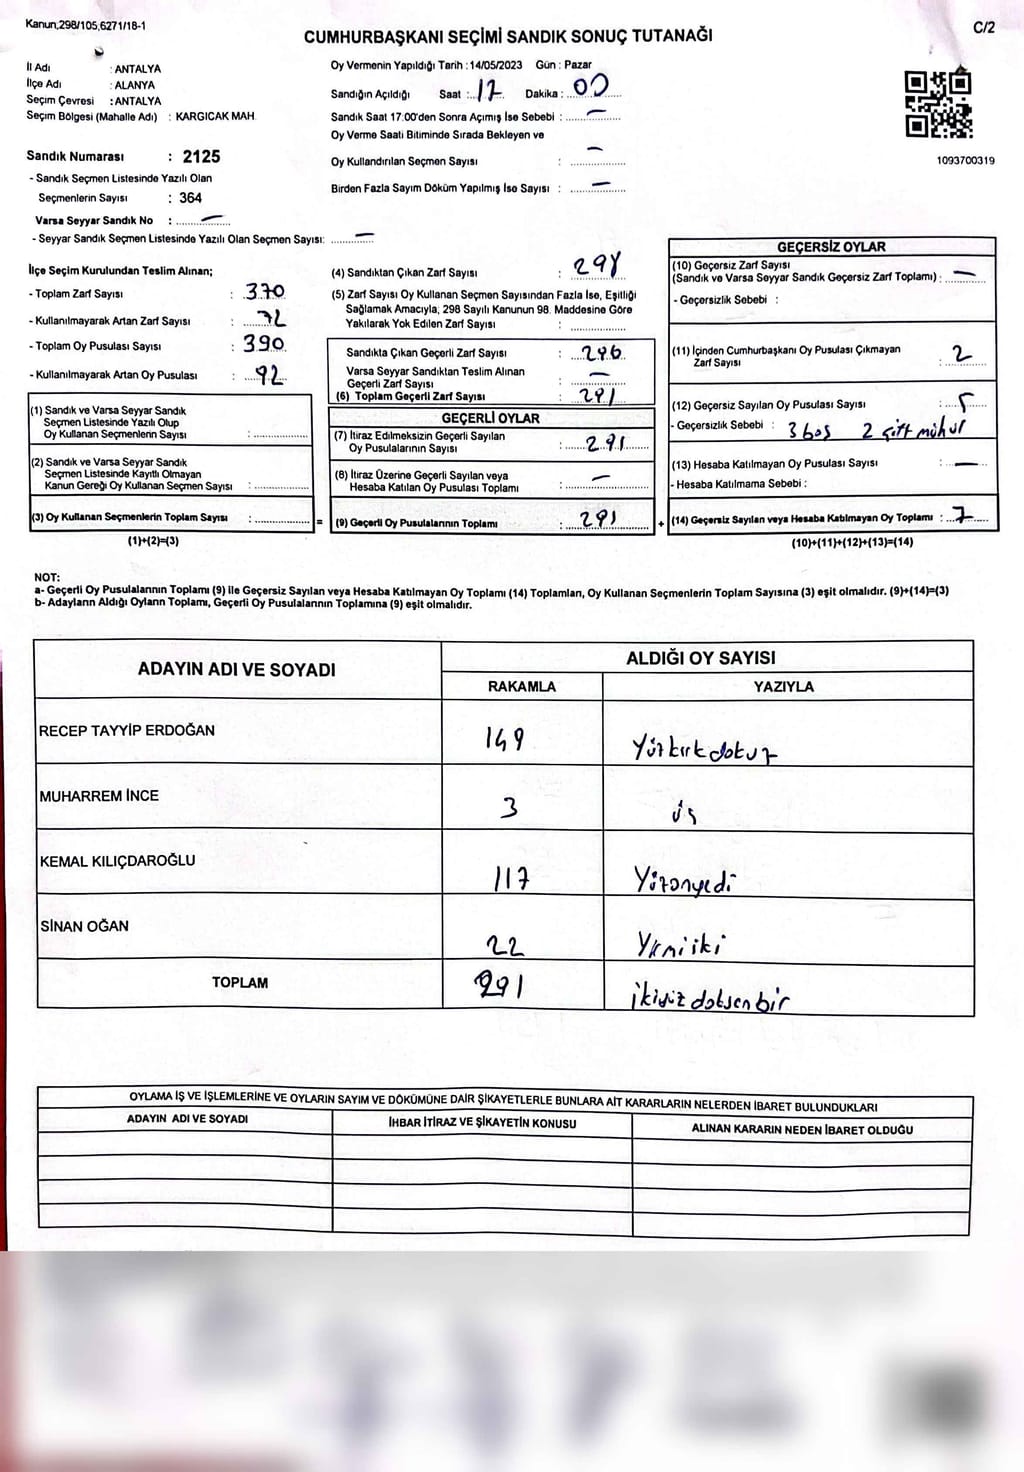 Kanun,298/105,6271/18-1
C/2
CUMHURBAŞKANI SEÇİMİ SANDIK SONUÇ TUTANAĞI
İl Adı : ANTALYA
İlçe Adı : ALANYA
Seçim Çevresi : ANTALYA
Seçim Bölgesi (Mahalle Adı) : KARGICAK MAH.
Sandık Numarası : 2125
- Sandık Seçmen Listesinde Yazılı Olan
Seçmenlerin Sayısı : 364
Varsa Seyyar Sandık No : —
- Seyyar Sandık Seçmen Listesinde Yazılı Olan Seçmen Sayısı: —
Oy Vermenin Yapıldığı Tarih :14/05/2023 Gün : Pazar
Sandığın Açıldığı Saat : 17 Dakika : 00
Sandık Saat 17:00'den Sonra Açımış İse Sebebi : —
Oy Verme Saati Bitiminde Sırada Bekleyen ve
Oy Kullandırılan Seçmen Sayısı : —
Birden Fazla Sayım Döküm Yapılmış İse Sayısı : —
1093700319
İlçe Seçim Kurulundan Teslim Alınan;
- Toplam Zarf Sayısı : 370
- Kullanılmayarak Artan Zarf Sayısı : 72
- Toplam Oy Pusulası Sayısı : 390
- Kullanılmayarak Artan Oy Pusulası : 92
(1) Sandık ve Varsa Seyyar Sandık
Seçmen Listesinde Yazılı Olup
Oy Kullanan Seçmenlerin Sayısı :
(2) Sandık ve Varsa Seyyar Sandık
Seçmen Listesinde Kayıtlı Olmayan
Kanun Gereği Oy Kullanan Seçmen Sayısı :
(3) Oy Kullanan Seçmenlerin Toplam Sayısı : =
(1)+(2)=(3)
(4) Sandıktan Çıkan Zarf Sayısı : 298
(5) Zarf Sayısı Oy Kullanan Seçmen Sayısından Fazla İse, Eşitliği
Sağlamak Amacıyla, 298 Sayılı Kanunun 98. Maddesine Göre
Yakılarak Yok Edilen Zarf Sayısı :
Sandıkta Çıkan Geçerli Zarf Sayısı : 296
Varsa Seyyar Sandıktan Teslim Alınan
Geçerli Zarf Sayısı : —
(6) Toplam Geçerli Zarf Sayısı : 291
GEÇERLİ OYLAR
(7) İtiraz Edilmeksizin Geçerli Sayılan
Oy Pusulalarının Sayısı : 291
(8) İtiraz Üzerine Geçerli Sayılan veya
Hesaba Katılan Oy Pusulası Toplamı : —
(9) Geçerli Oy Pusulalarının Toplamı : 291 +
GEÇERSİZ OYLAR
(10) Geçersiz Zarf Sayısı
(Sandık ve Varsa Seyyar Sandık Geçersiz Zarf Toplamı) : —
- Geçersizlik Sebebi :
(11) İçinden Cumhurbaşkanı Oy Pusulası Çıkmayan
Zarf Sayısı : 2
(12) Geçersiz Sayılan Oy Pusulası Sayısı : 5
- Geçersizlik Sebebi : 3 boş 2 çift mühür
(13) Hesaba Katılmayan Oy Pusulası Sayısı : —
- Hesaba Katılmama Sebebi :
(14) Geçersiz Sayılan veya Hesaba Katılmayan Oy Toplamı : 7
(10)+(11)+(12)+(13)=(14)
NOT:
a- Geçerli Oy Pusulalarının Toplamı (9) ile Geçersiz Sayılan veya Hesaba Katılmayan Oy Toplamı (14) Toplamları, Oy Kullanan Seçmenlerin Toplam Sayısına (3) eşit olmalıdır. (9)+(14)=(3)
b- Adayların Aldığı Oyların Toplamı, Geçerli Oy Pusulalarının Toplamına (9) eşit olmalıdır.
ADAYIN ADI VE SOYADI ALDIĞI OY SAYISI
RAKAMLA YAZIYLA
RECEP TAYYİP ERDOĞAN 149 Yüzkırkdokuz
MUHARREM İNCE 3 üç
KEMAL KILIÇDAROĞLU 117 Yüzonyedi
SİNAN OĞAN 22 Yirmiiki
TOPLAM 291 ikiyüzdoksanbir
OYLAMA İŞ VE İŞLEMLERİNE VE OYLARIN SAYIM VE DÖKÜMÜNE DAİR ŞİKAYETLERLE BUNLARA AİT KARARLARIN NELERDEN İBARET BULUNDUKLARI
ADAYIN ADI VE SOYADI İHBAR İTİRAZ VE ŞİKAYETİN KONUSU ALINAN KARARIN NEDEN İBARET OLDUĞU